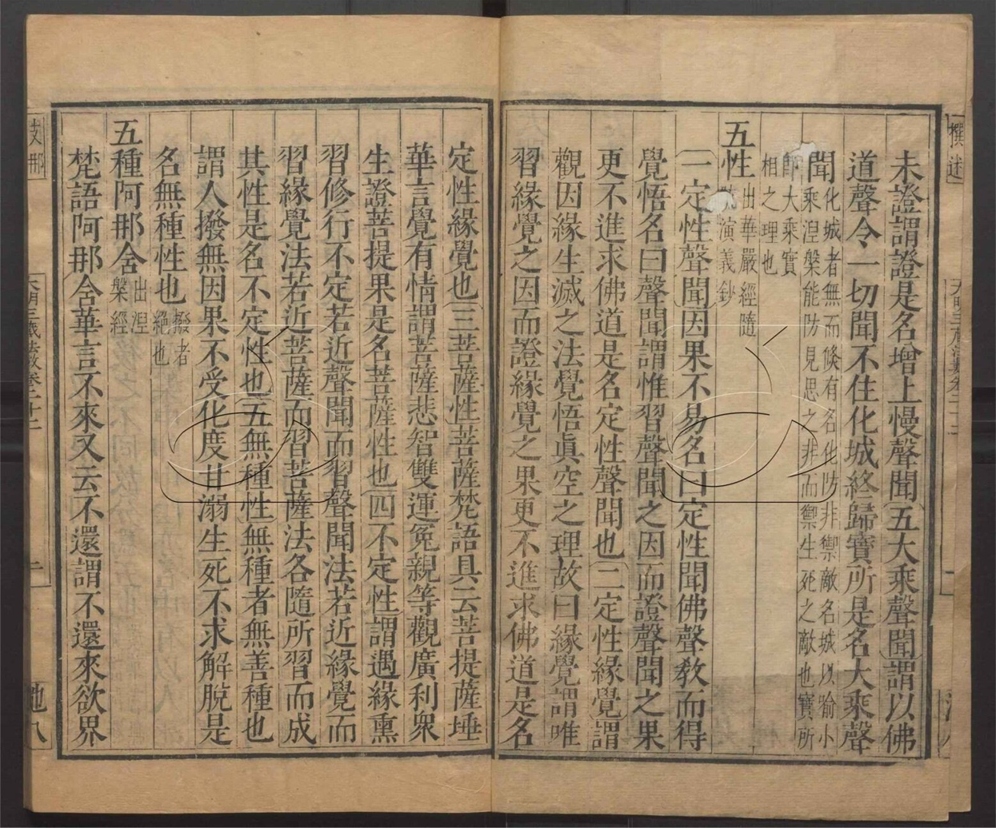 未證謂證是名增上慢聲聞五大乘聲聞謂以佛
道聲令一切聞不住化城終歸寶所是名大乘聲
聞化城者無而倐有名化防非禦敵名城以喻小
乘涅槃能防見思之非而禦生死之敵也寶所
即大乘實
相之理也
五性出華嚴經隨
演義鈔
一定性聲聞因果不易名曰定性聞佛聲教而得
覺悟名曰聲聞謂惟習聲聞之因而證聲聞之果
更不進求佛道是名定性聲聞也二定性緣覺謂
觀因緣生滅之法覺悟眞空之理故曰緣覺謂唯
習緣覺之因而證緣覺之果更不進求佛道是名
定性緣覺也三菩薩性菩薩梵語具云菩提薩埵
華言覺有情謂菩薩悲智雙運冤親等觀廣利衆
生證菩提果是名菩薩性也四不定性謂遇緣熏
習修行不定若近聲聞而習聲聞法若近緣覺而
習緣覺法若近菩薩而習菩薩法各隨所習而成
其性是名不定性也五無種性無種者無善種也
謂人撥無因果不受化度甘溺生死不求解脫是
名無種性也撥者
絕也
五種阿那含出涅
槃經
梵語阿那含華言不來又云不還謂不還來欲界
大明三藏法數卷二十二
二
池八